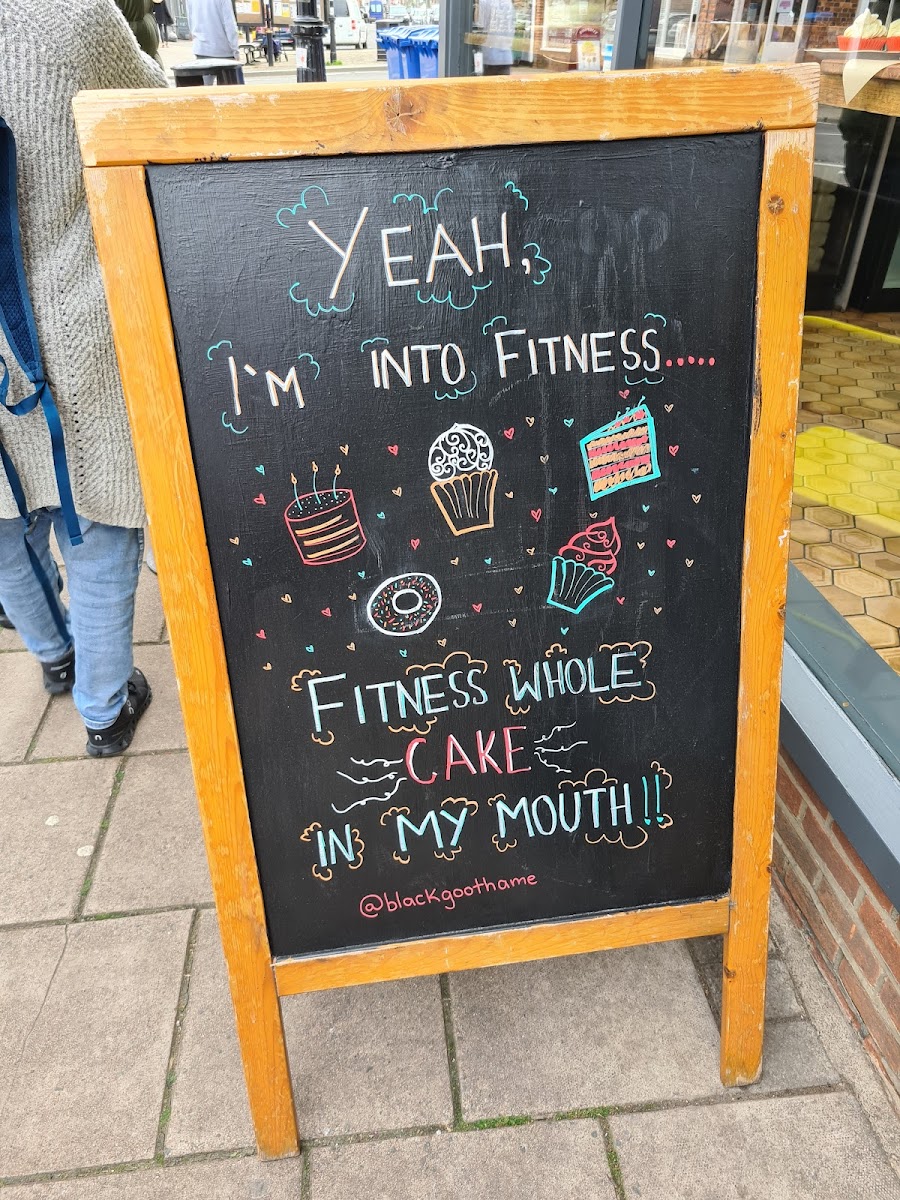 YEAH,
I'M INTO FITNESS.....
FITNESS WHOLE
CAKE
IN MY MOUTH!!
@blackgoothame